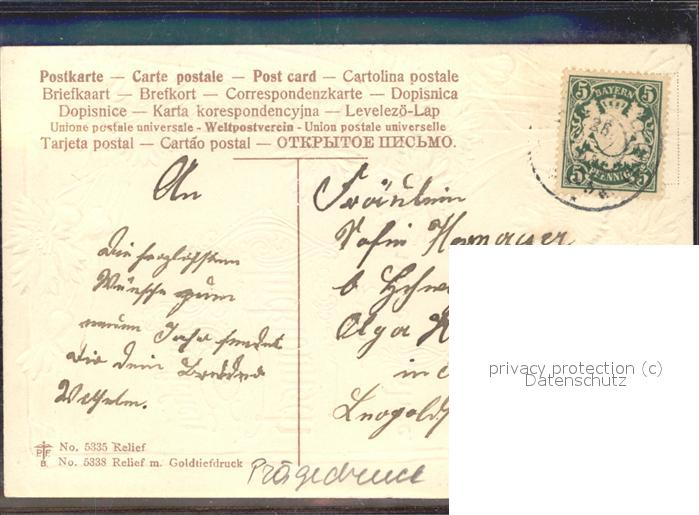 Postkarte — Carte postale — Post card — Cartolina postale
Briefkaart — Brefkort — Correspondenzkarte — Dopisnica
Dopisnice — Karta korespondencyjna — Levelező-Lap
Unione postale universale - Weltpostverein - Union postale universelle
Tarjeta postal — Cartão postal — ОТКРЫТОЕ ПИСЬМО.
5 BAYERN 5
25.
5 PFENNIG 5
An
Fräulein
Sofie
b.
Olga
in
Die herzlichsten
Wünsche zum
neuen Jahr sendet
Dir Dein
Wilhelm.
privacy protection (c)
Datenschutz
PF
B.
No. 5335 Relief
No. 5338 Relief m. Goldtiefdruck
Prägedruck